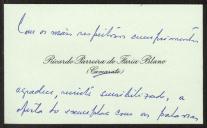 Com os mais respeitosos cumprimentos
Ricardo Parreira de Faria Blanc
(Camarate)
agradece, muito sensibilizado, a
oferta do exemplar com as palavras